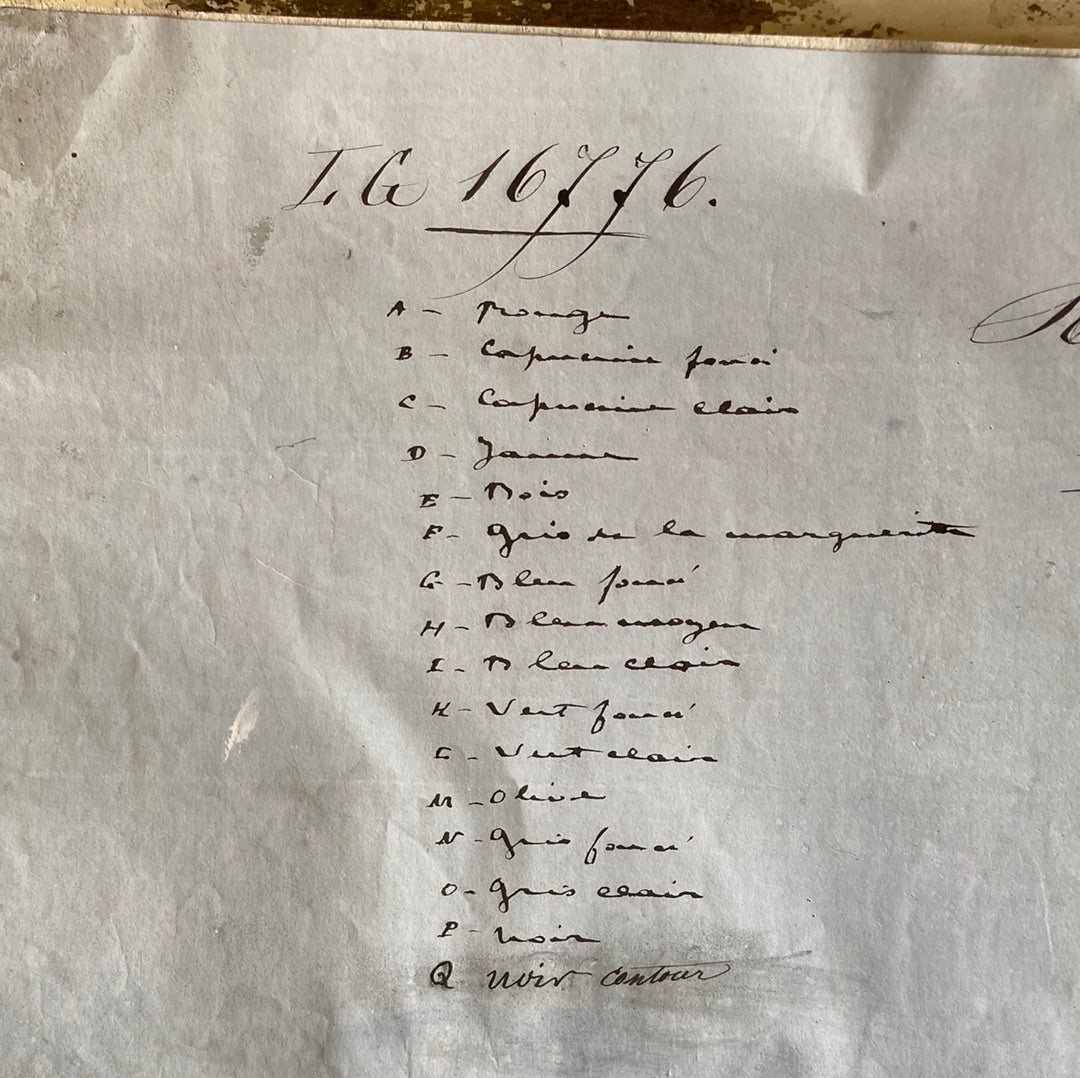 LG 16776.
A - Rouge
B - Capucine foncé
C - Capucine clair
D - Jaune
E - Bois
F - gris de la marguerite
G - Bleu foncé
H - Bleu moyen
I - Bleu clair
K - Vert foncé
L - Vert clair
M - Olive
N - gris foncé
O - gris clair
P - noir
Q noir contour